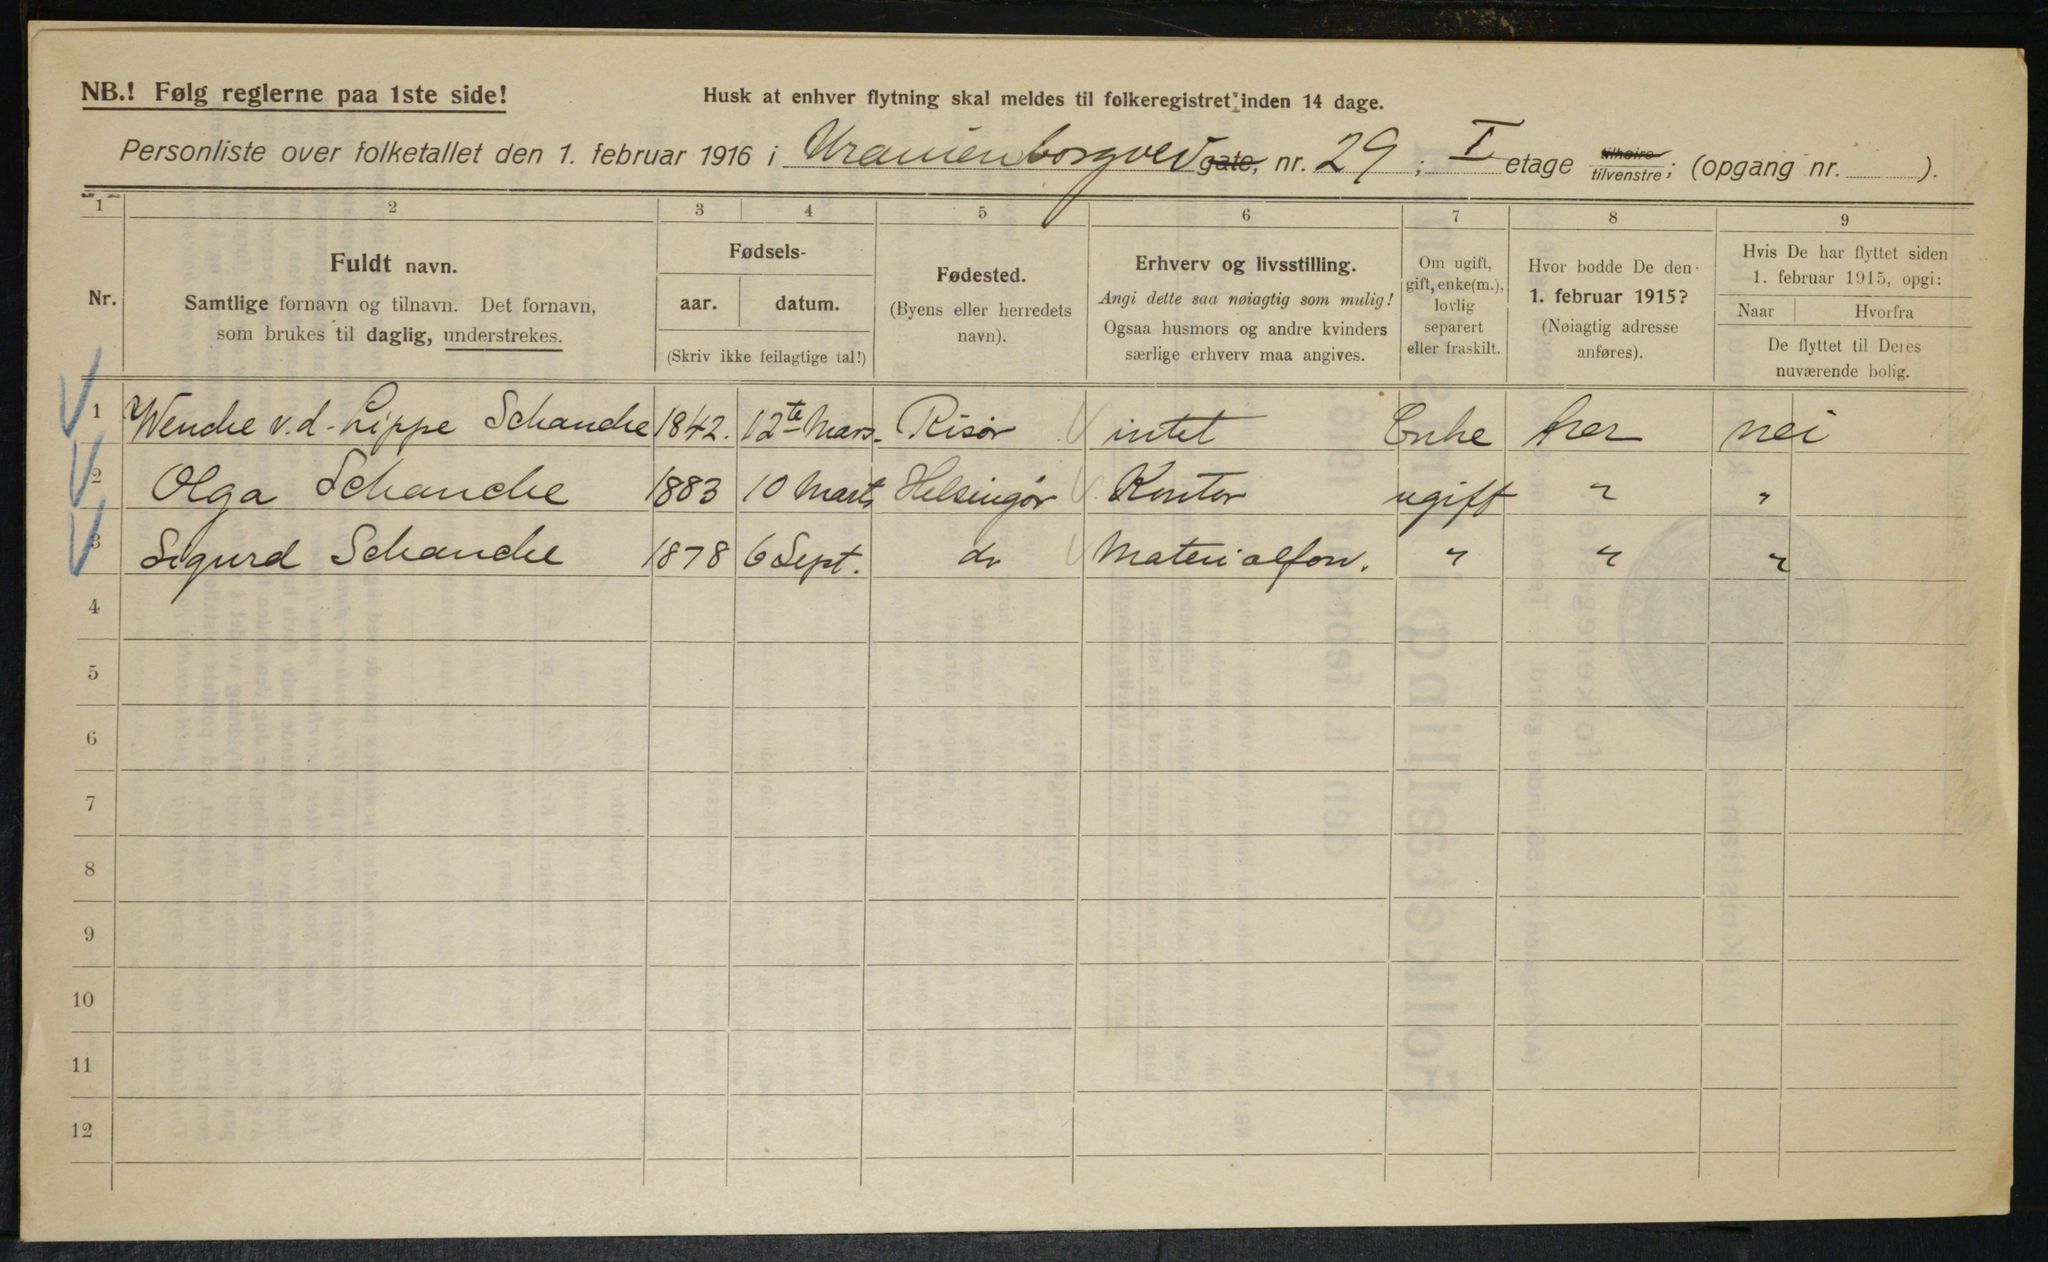 NB.! Følg reglerne paa 1ste side!
Husk at enhver flytning skal meldes til folkeregistret inden 14 dage.
Personliste over folketallet den 1. februar 1916 i Uranienborgvei gate, nr. 29; I etage tilhøire tilvenstre; (opgang nr. ).
1 2 3 4 5 6 7 8 9
Nr.
Fuldt navn.
Samtlige fornavn og tilnavn. Det fornavn,
som brukes til daglig, understrekes.
Fødsels-
aar. datum.
(Skriv ikke feilagtige tal!)
Fødested.
(Byens eller herredets
navn).
Erhverv og livsstilling.
Angi dette saa nøiagtig som mulig!
Ogsaa husmors og andre kvinders
særlige erhverv maa angives.
Om ugift,
gift, enke(m.),
lovlig
separert
eller fraskilt.
Hvor bodde De den
1. februar 1915?
(Nøiagtig adresse
anføres).
Hvis De har flyttet siden
1. februar 1915, opgi:
Naar Hvorfra
De flyttet til Deres
nuværende bolig.
1 Wenche v.d. Lippe Schanche 1842. 12te Mars. Risør intet Enke her nei
2 Olga Schanche 1883 10 Marts Helsingør Kontor ugift " "
3 Sigurd Schanche 1878 6 Sept. do Materialforv. " " "
4
5
6
7
8
9
10
11
12